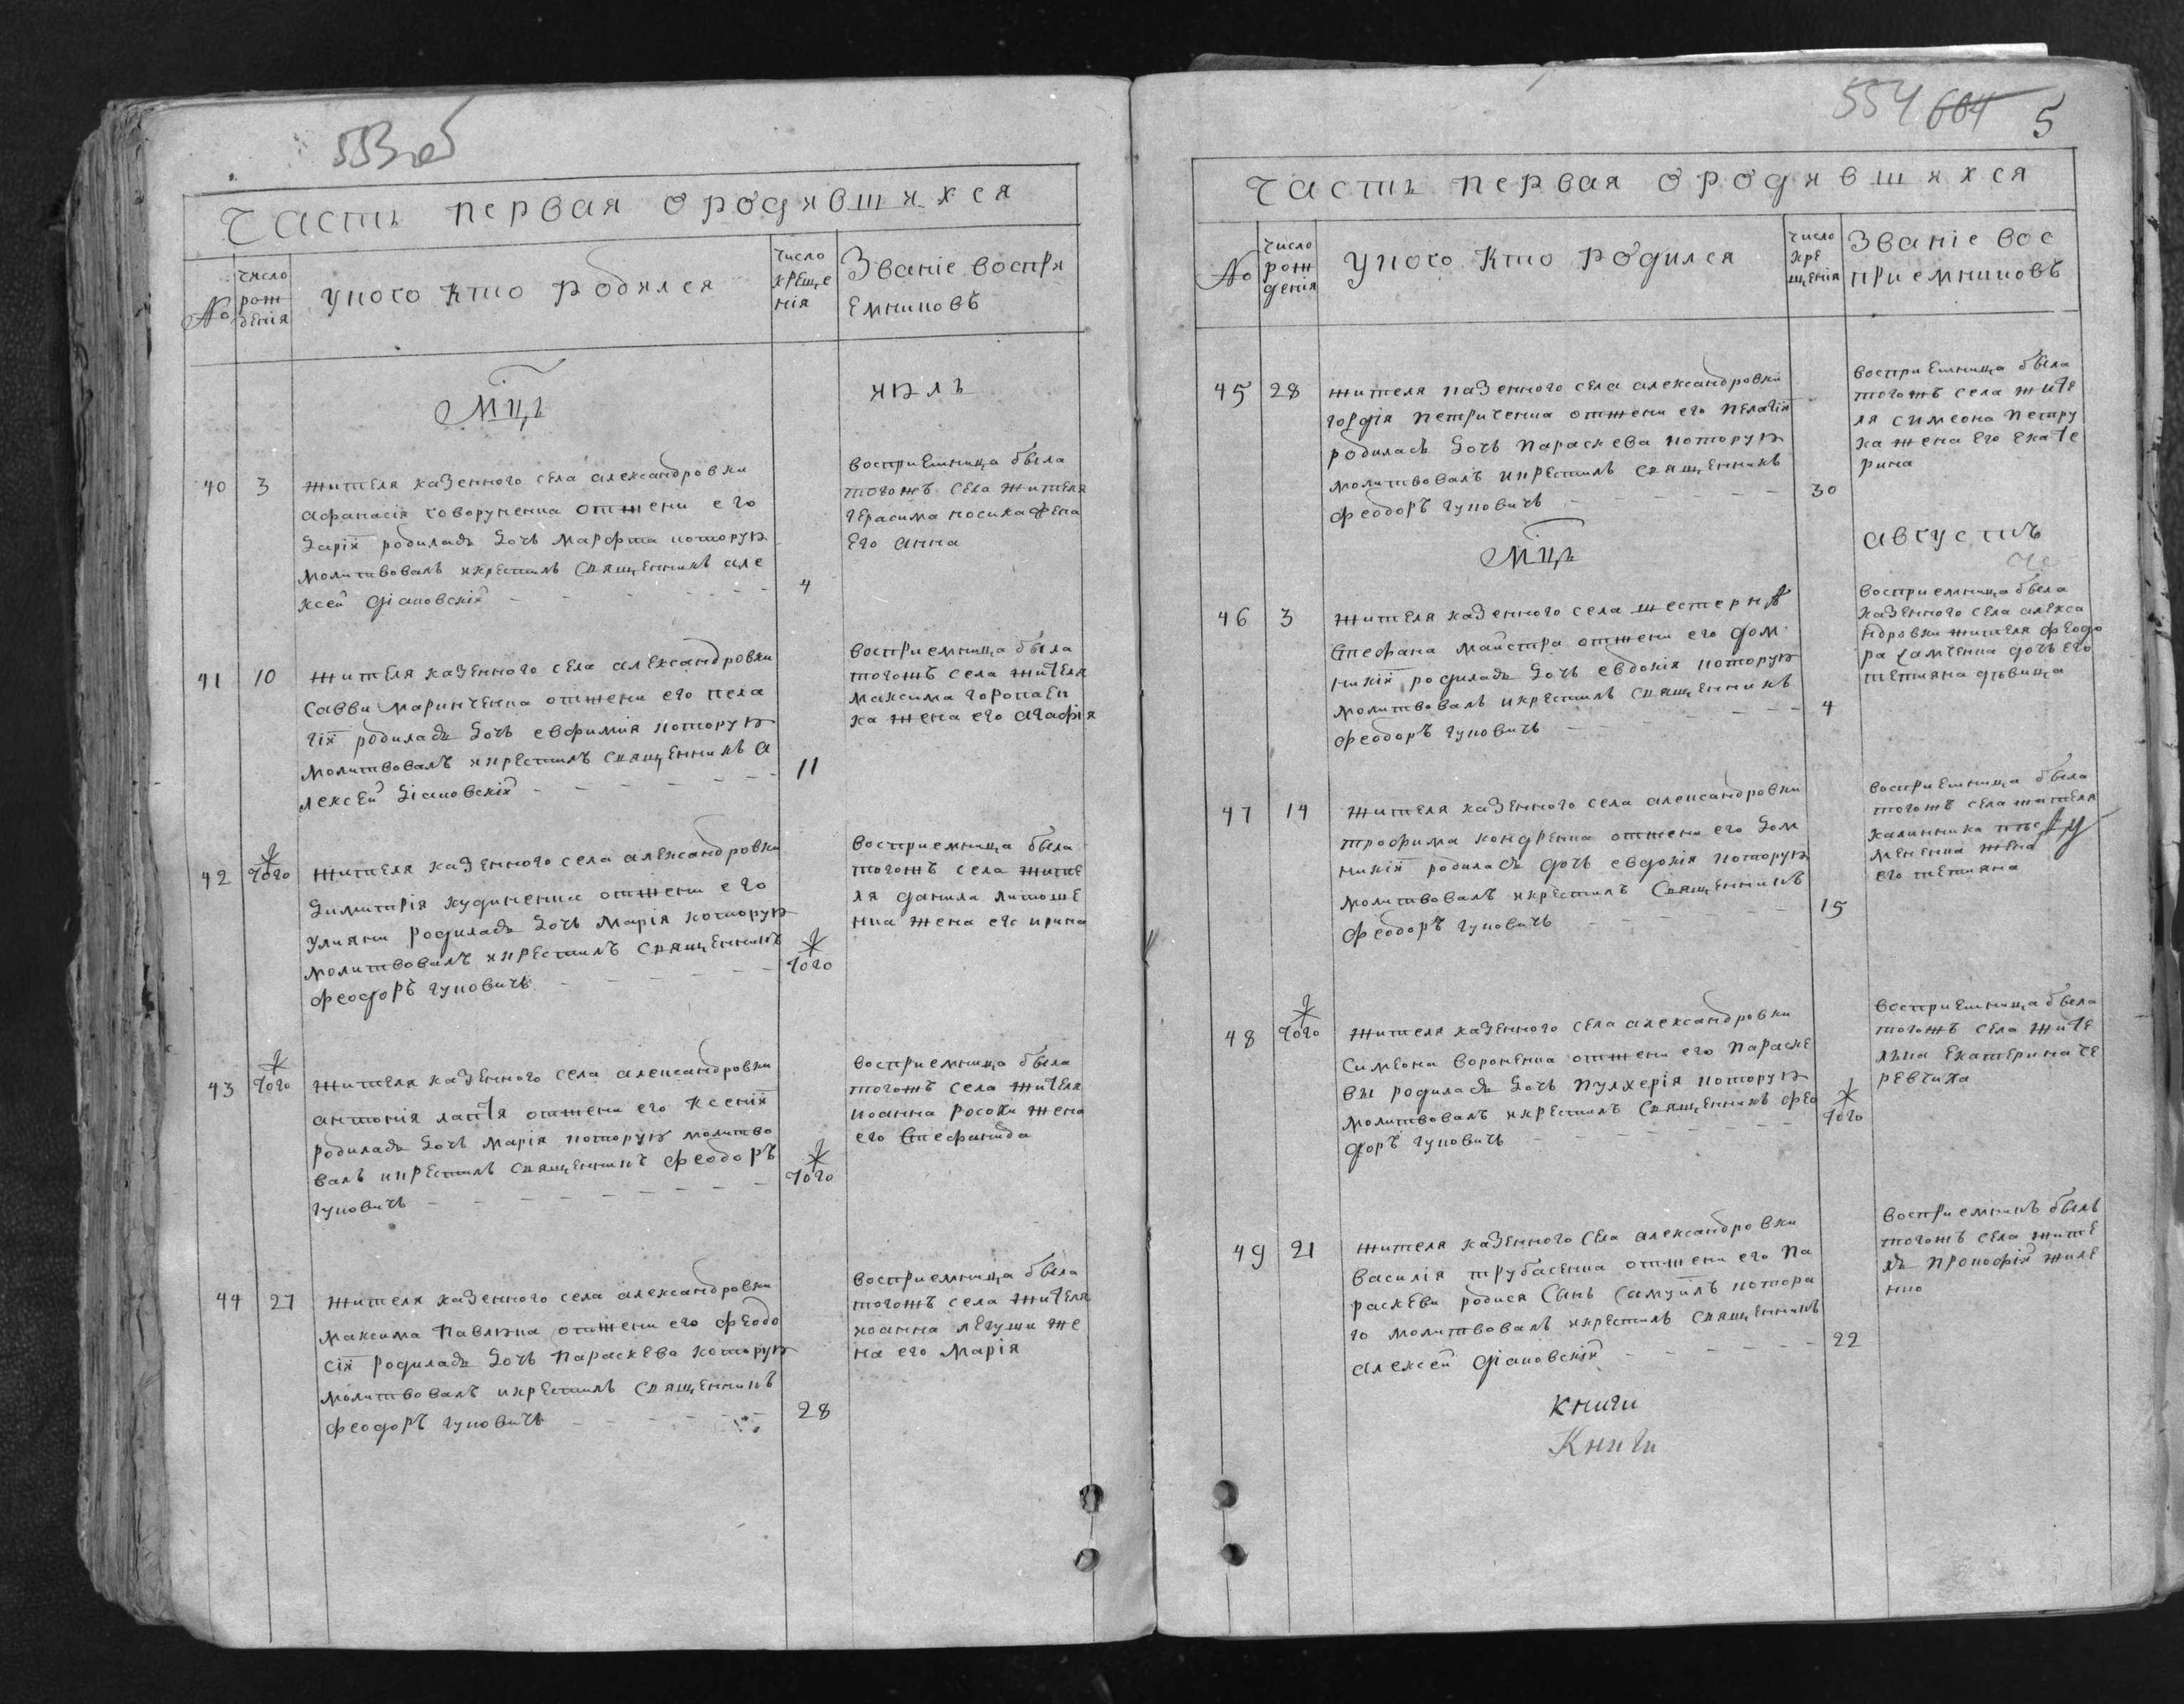 553об
Часть первая ородившихся
№
число рождения
укого кто родился
число крещения
Званіе воспріемниковъ
Мцъ июль
40 3
жителя казенного села александровки
афанасія говоруненка отжени его
даріи родилась дочь марфта которую
молитвовалъ икрестилъ священникъ але
ксей діаповскій
4
восприемница была
тогожъ села жителя
герасима носика жена
его анна
41 10
жителя казенного села александровки
саввы маринченка отжени его пела
гіи родилась дочь евфимія которую
молитвовалъ икрестилъ священникъ а
лексей діаповскій
11
восприемница была
тогожъ села жителя
максима горопаен
ка жена его агафія
42 того
жителя казенного села александровки
димитрія худиненка отжени его
улияни родилась дочь марія которую
молитвовалъ икрестилъ священникъ
феодоръ гуповичъ
того
восприемница была
тогожъ села жите
ля данила литоше
нка жена его ирина
43 того
жителя казенного села александровки
антонія лаптя отжени его ксеніи
родилась дочь марія которую молитво
валъ икрестилъ священникъ феодоръ
гуповичъ
того
восприемница была
тогожъ села жителя
иоанна росохи жена
его стефанида
44 27
жителя казенного села александровки
максима павлюка отжени его феодо
сіи родилась дочь параскева которую
молитвовалъ икрестилъ священникъ
феодоръ гуповичъ
28
восприемница была
тогожъ села жителя
иоанна легуши же
на его марія
554 604 5
Часть первая ородившихся
№
число рождения
укого кто родился
число крещенія
Званіе воспріемниковъ
45 28
жителя казенного села александровки
гордія петриченка отжени его пелагіи
родилась дочь параскева которую
молитвовалъ икрестилъ священникъ
феодоръ гуповичъ
30
восприемница была
тогожъ села жите
ля симеона петру
ка жена его екате
рина
Мцъ августъ
46 3
жителя казенного села шестерне
стефана майстра отжени его дом
никіи родилась дочь евдокія которую
молитвовалъ икрестилъ священникъ
феодоръ гуповичъ
4
восприемница была
казенного села алекса
ндровки жителя феодо
ра хамченка дочь его
тетияна дѣвица
47 14
жителя казенного села александровки
трофима кондренка отжени его дом
никіи родилась дочь евдокія которую
молитвовалъ икрестилъ священникъ
феодоръ гуповичъ
15
восприемница была
тогожъ села жителя
калинника
менка жена
его тетияна
48 того
жителя казенного села александровки
симеона вороненка отжени его параске
вы родилась дочь пулхерія которую
молитвовалъ икрестилъ священникъ фео
доръ гуповичъ
того
восприемница была
тогожъ села жите
лька екатерина че
ревчиха
49 21
жителя казенного села александровки
василія трубасенка отжени его па
раскеви родися сынъ самуилъ котора
го молитвовалъ икрестилъ священникъ
алексей діаповскій
22
восприемникъ былъ
тогожъ села жите
ль прокофій жиле
нко
книги
Книги